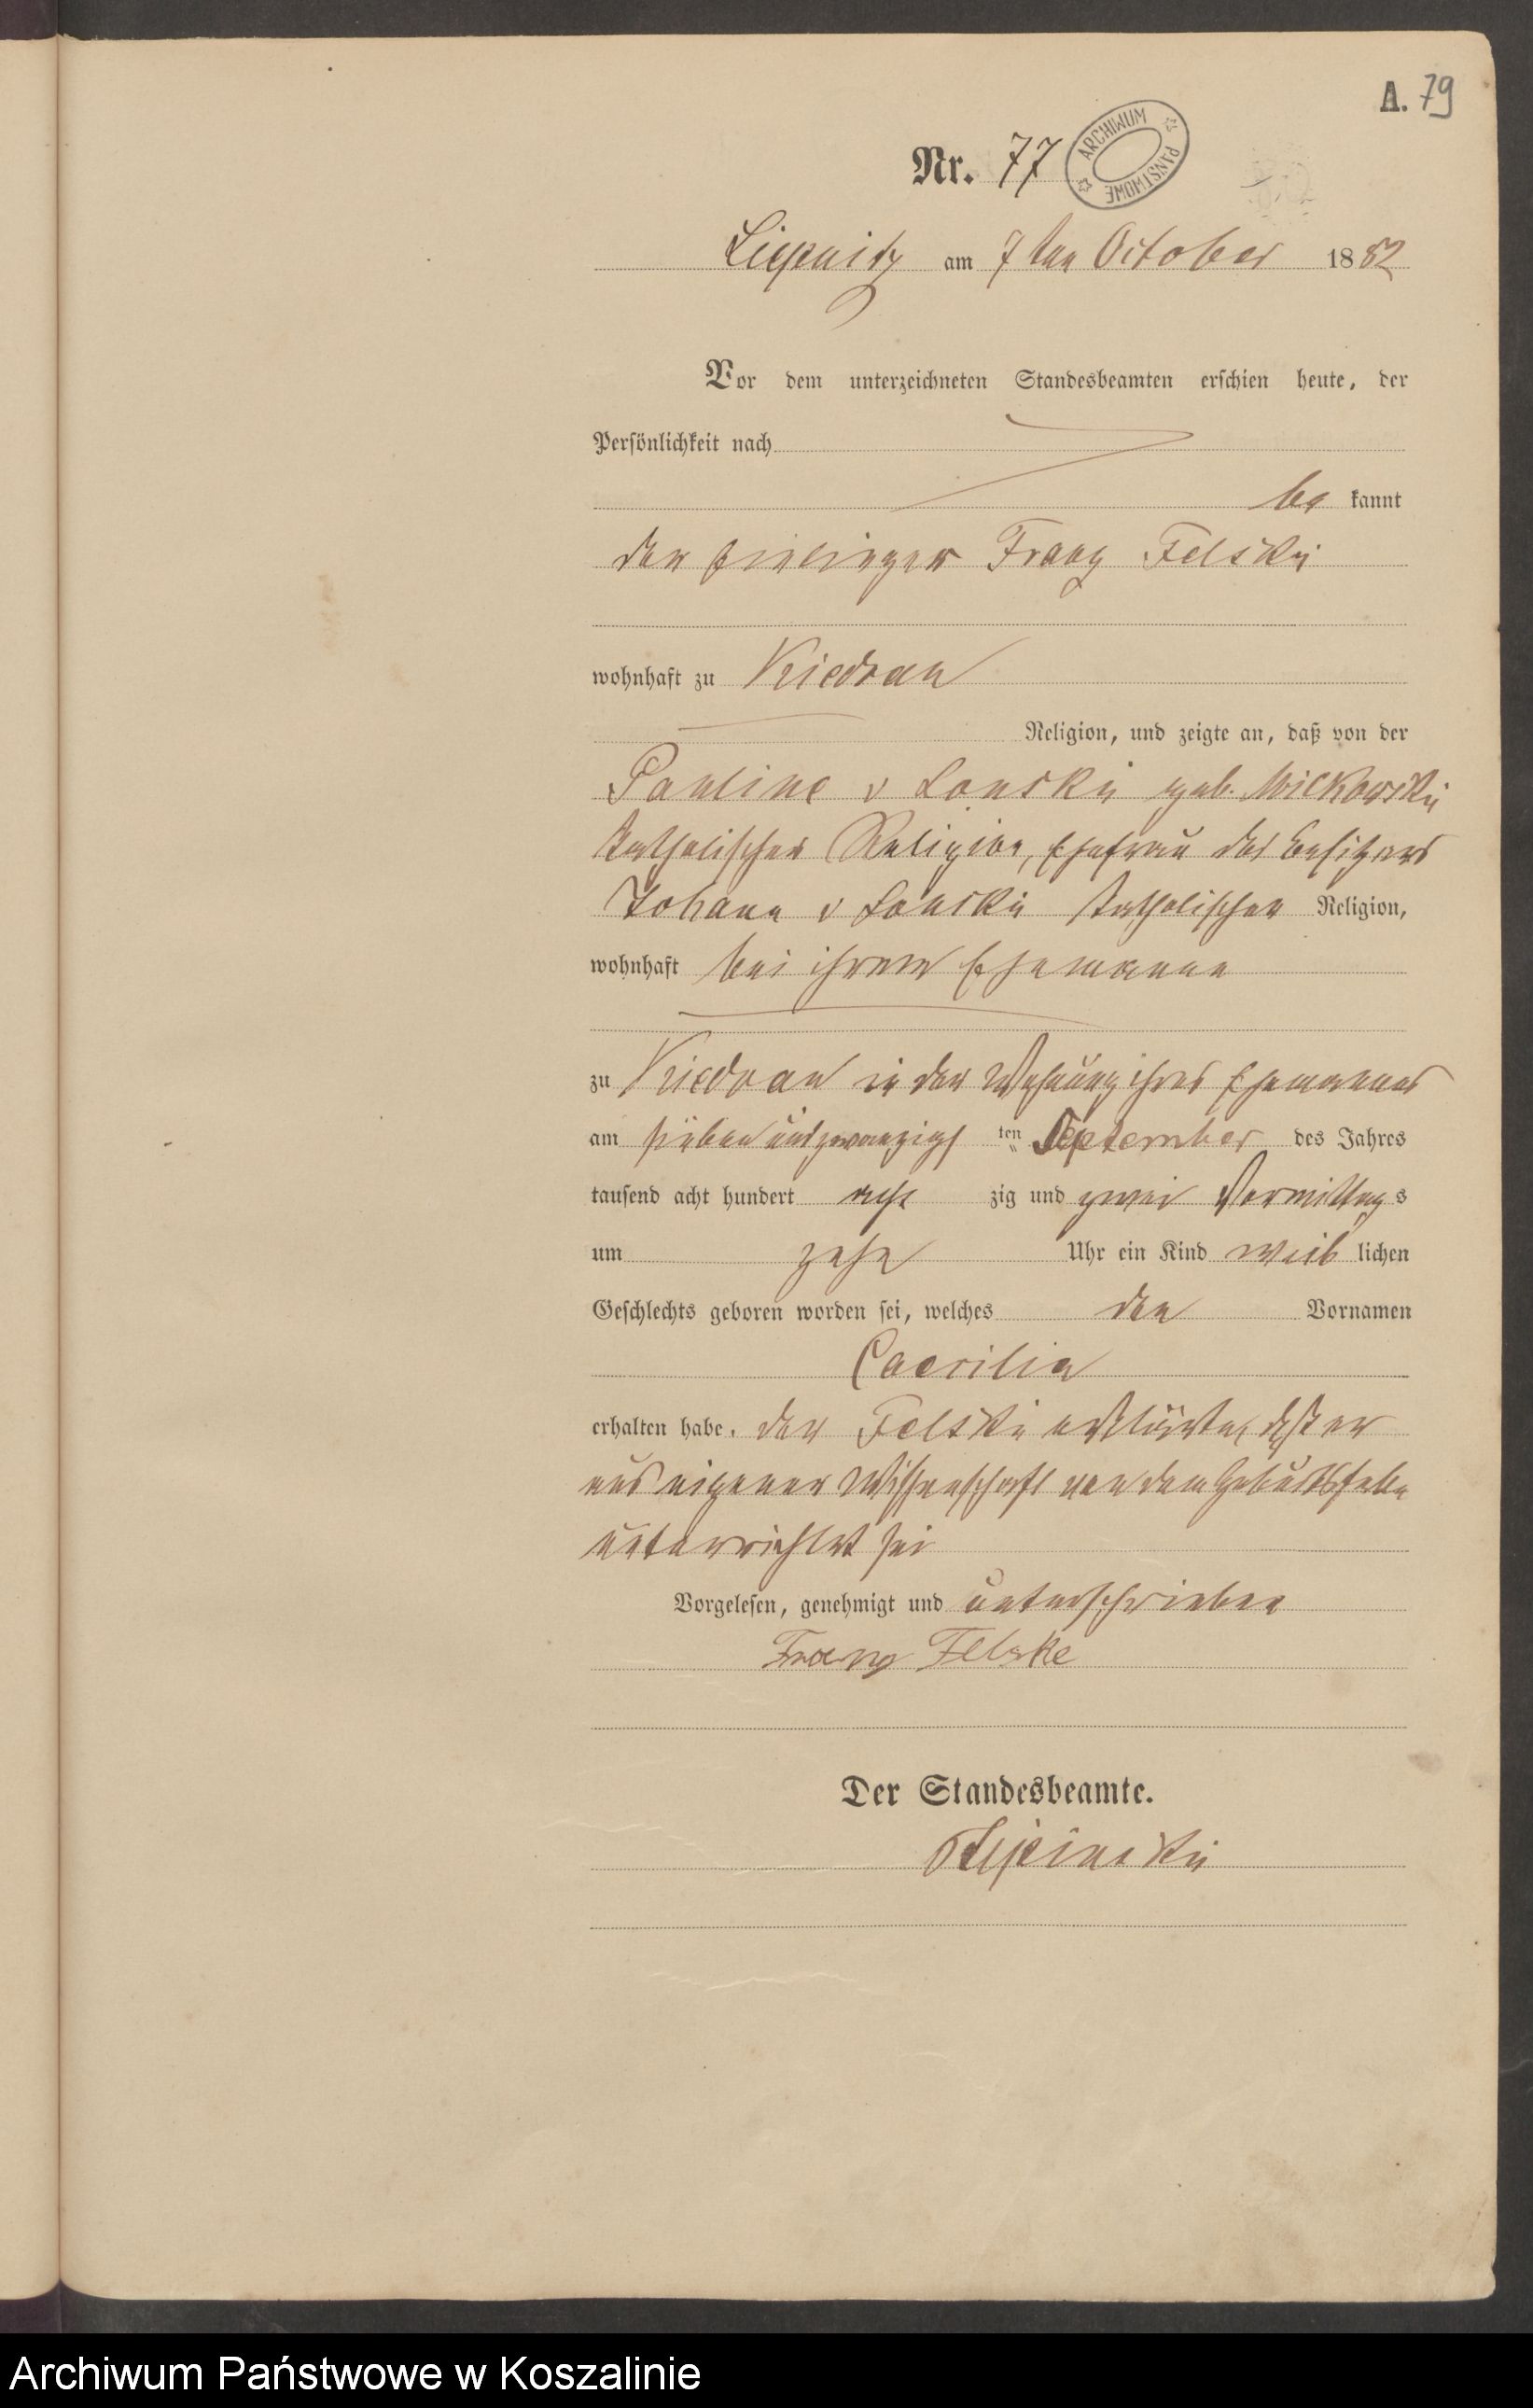 A. 79
Nr. 77
ARCHIWUM PAŃSTWOWE
Liepnitz am 7ten October 1882
Vor dem unterzeichneten Standesbeamten erschien heute, der
Persönlichkeit nach
be kannt
der Franz Felski
wohnhaft zu Kiedrau
Religion, und zeigte an, daß von der
Pauline v Lonski geb. Wilkowski
katholischer Religion, Ehefrau des Besitzers
Johann v Lonski katholischer Religion,
wohnhaft bei ihrem Ehemanne
zu Kiedrau in der Wohnung ihres Ehemannes
am sieben und zwanzigs ten September des Jahres
tausend acht hundert acht zig und zwei Vormittags
um zehn Uhr ein Kind weib lichen
Geschlechts geboren worden sei, welches den Vornamen
Caecilia
erhalten habe. der Felski erklärte, daß er
aus eigener Wissenschaft von dem Geburtsfalle
unterrichtet sei
Vorgelesen, genehmigt und unterschrieben
Franz Felske
Der Standesbeamte.
Archiwum Państwowe w Koszalinie